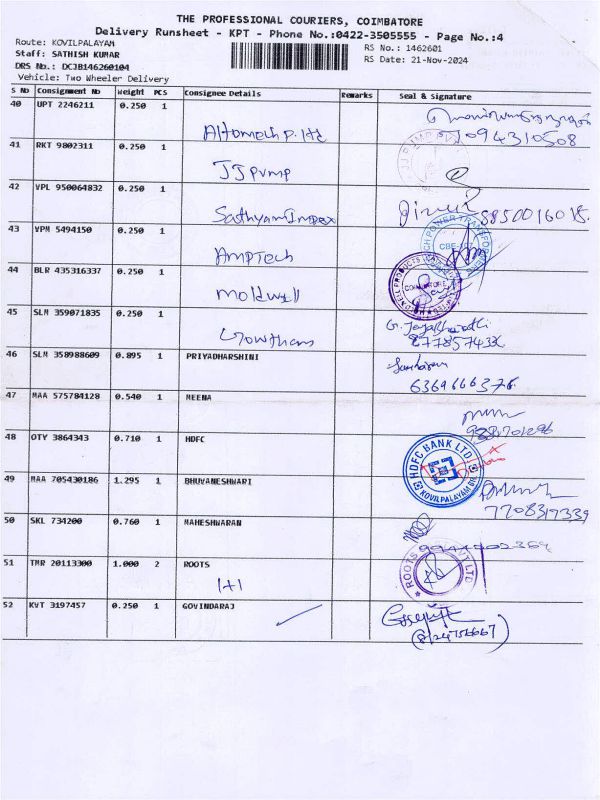 THE PROFESSIONAL COURIERS, COIMBATORE
Delivery Runsheet - KPT - Phone No.:0422-3505555 - Page No.:4
Route: KOVILPALAYAM RS No.: 1462601
Staff: SATHISH KUMAR RS Date: 21-Nov-2024
DRS No.: DCJB146260104
Vehicle: Two Wheeler Delivery
S No Consignment No Weight PCS Consignee Details Remarks Seal & Signature
40 UPT 2246211 0.250 1
Altomech P. ltd 094310508
41 RKT 9802311 0.250 1
JJ pump
42 VPL 950064832 0.250 1
Sathyam Impex
43 VPM 5494150 0.250 1
AMPTech CBE-107
44 BLR 435316337 0.250 1
Moldwell COIMBATORE
45 SLM 359071835 0.250 1
Gowtham
46 SLM 358988609 0.895 1 PRIYADHARSHINI
6369666376
47 MAA 575784128 0.540 1 MEENA
48 OTY 3864343 0.710 1 HDFC
HDFC BANK LTD
KOVILPALAYAM BR
49 MAA 705430186 1.295 1 BHUVANESHWARI
7708317339
50 SKL 734200 0.760 1 MAHESHWARAN
51 TMR 20113300 1.000 2 ROOTS
1+1 ROOTS PVT LTD
52 KVT 3197457 0.250 1 GOVINDARAJ